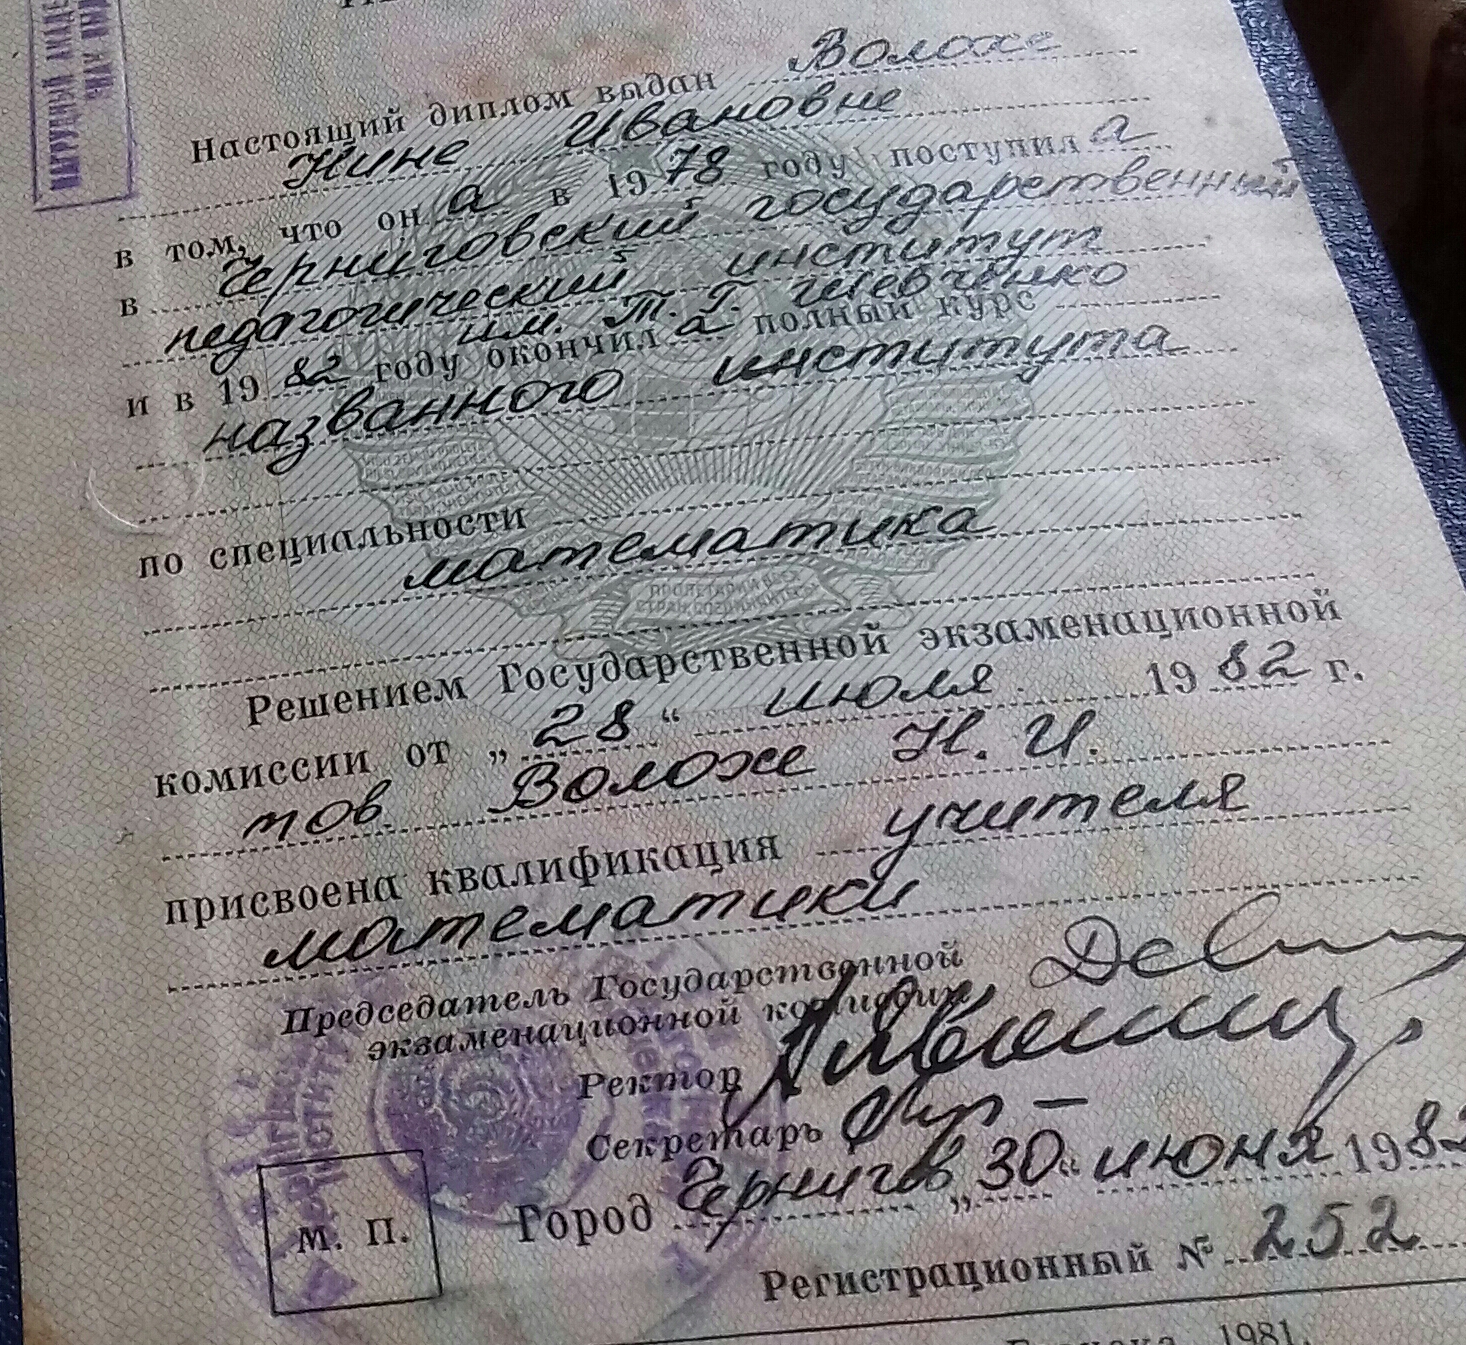 НАГРУДНЫЙ
Настоящий диплом выдан Воложе
Нине Ивановне
в том, что он а в 1978 году поступил а
в Черниговский государственный
педагогический институт
им. Т. Г. Шевченко
и в 1982 году окончил а полный курс
названного института
по специальности
математика
ПРОЛЕТАРИИ ВСЕХ
СТРАН, СОЕДИНЯЙТЕСЬ!
Решением Государственной экзаменационной
комиссии от „28“ июля 1982 г.
тов Воложе Н. И.
присвоена квалификация учителя
математики
Председатель Государственной
экзаменационной комиссии
Ректор
Секретарь
Город Чернигов „30“ июня 1982
М. П.
Регистрационный № 252
1981.